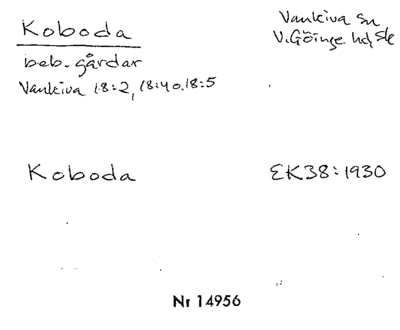 Koboda
Vankiva sn
V. Göinge hd, Sk
beb. gårdar
Vankiva 18:2, 18:4 o. 18:5
Koboda
EK38:1930
Nr 14956